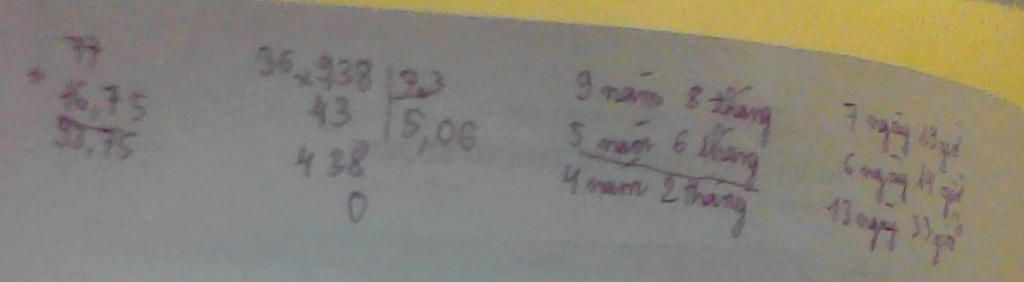 77
+
16,75
93,75
36,938 | 7,3
43 | 5,06
438
0
9 năm 8 tháng
5 năm 6 tháng
4 năm 2 tháng
7 ngày 19 giờ
6 ngày 14 giờ
13 ngày 33 giờ